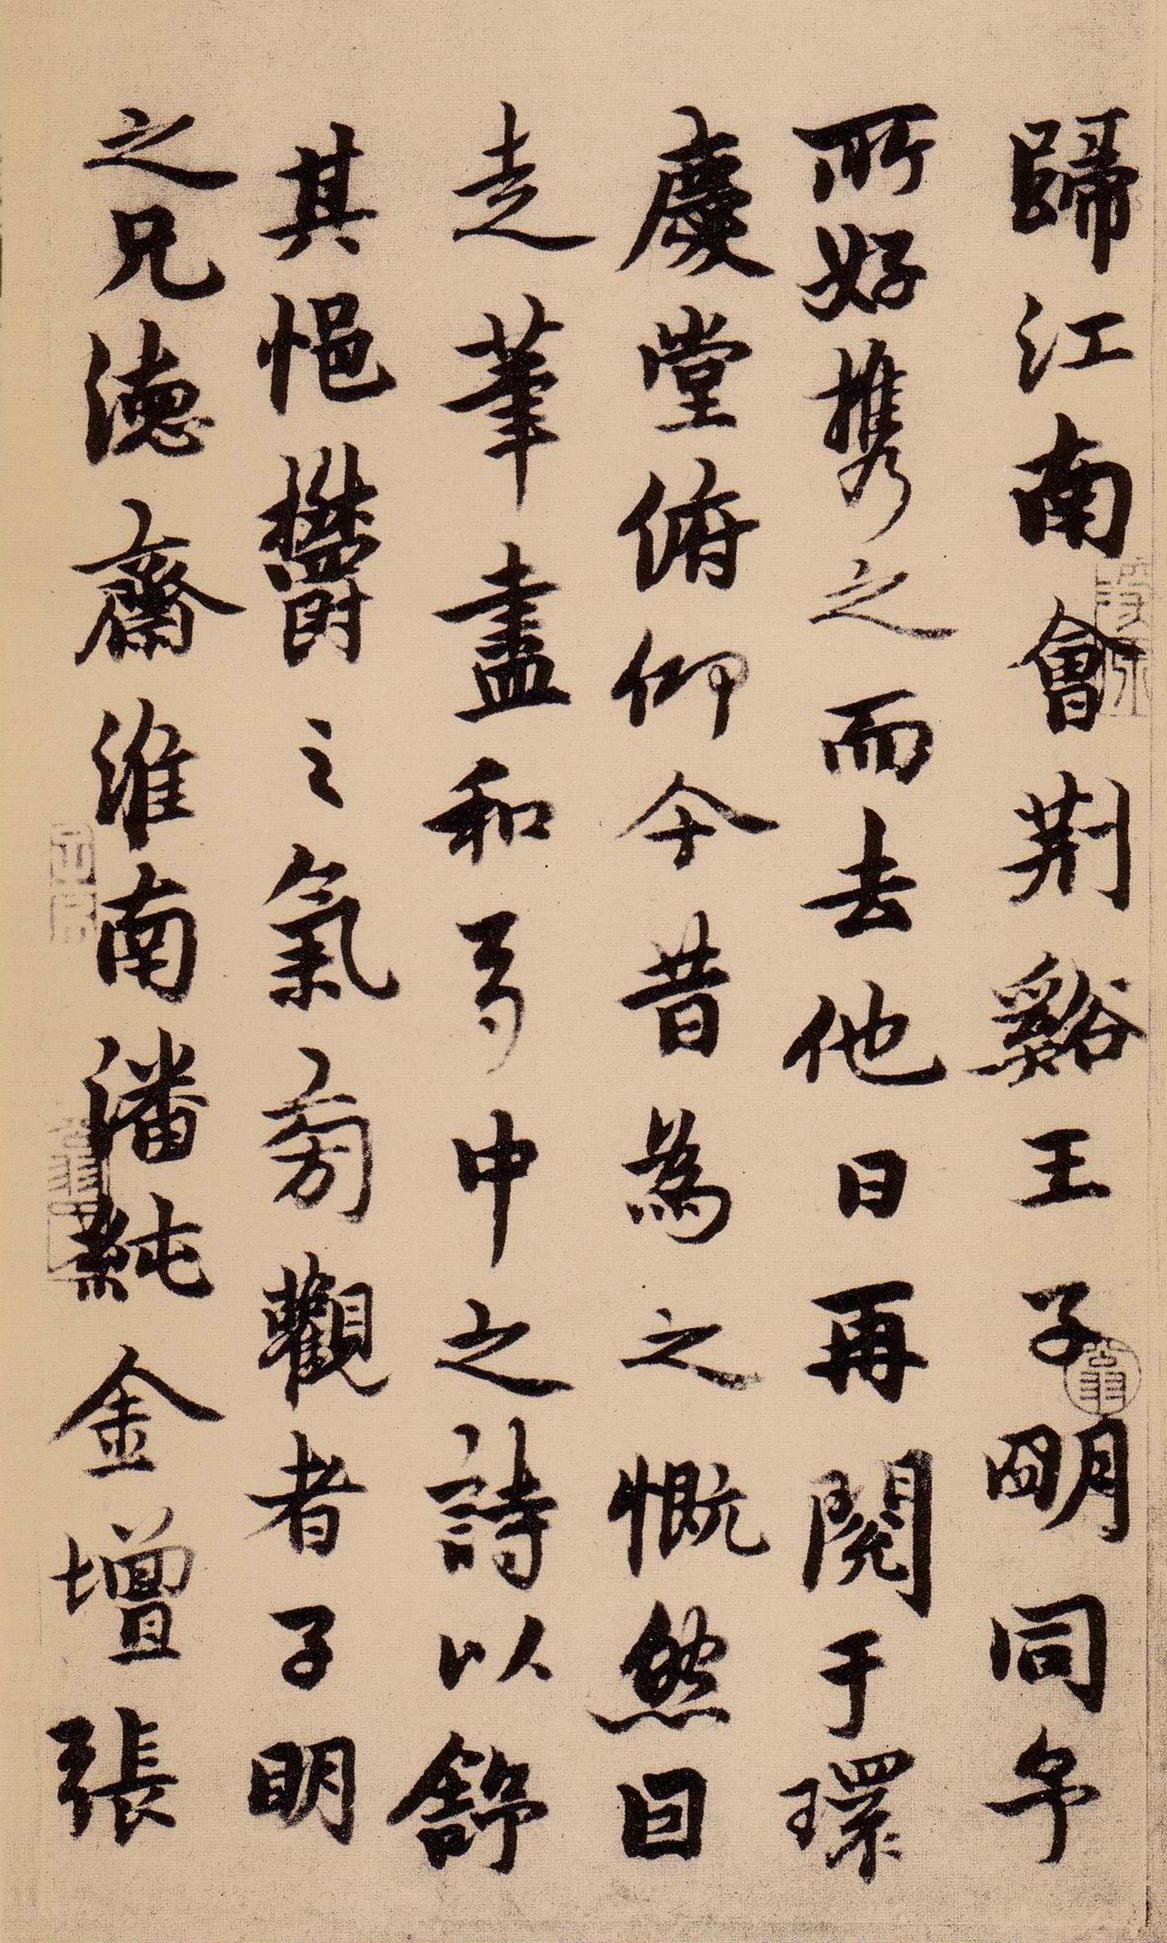 歸江南會荆谿王子明同予
所好携之而去他日再閱于環
慶堂俯仰今昔為之慨然因
走筆盡和卷中之詩以舒
其悒欝之氣旁觀者子明
之兄德齋淮南潘純金壇張